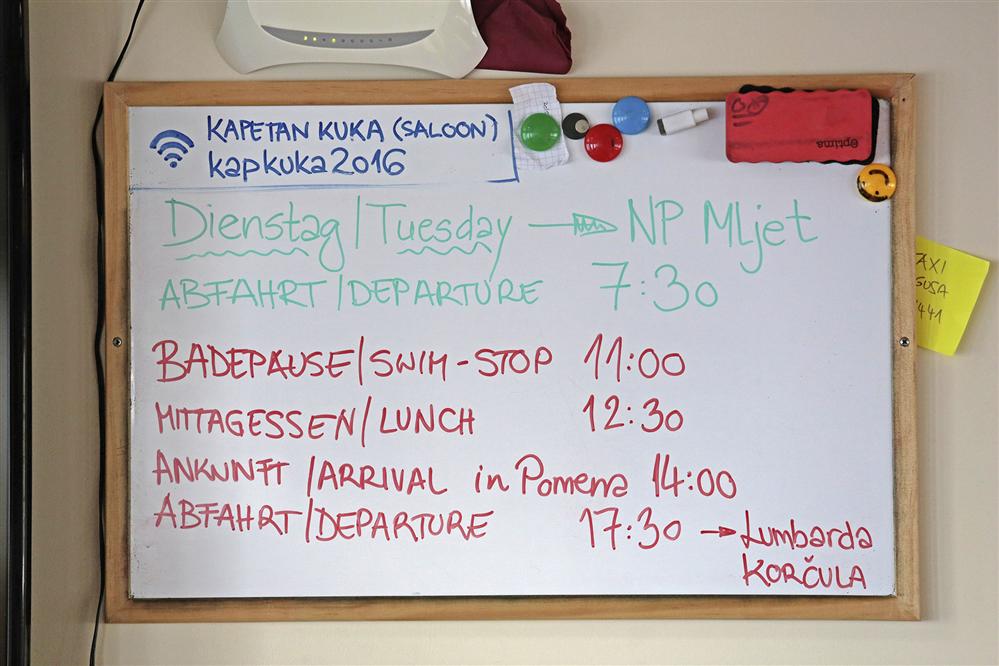 KAPETAN KUKA (SALOON)
kapkuka2016
Dienstag/Tuesday → NP Mljet
ABFAHRT/DEPARTURE 7:30
BADEPAUSE/SWIM-STOP 11:00
MITTAGESSEN/LUNCH 12:30
ANKUNFT/ARRIVAL in Pomena 14:00
ABFAHRT/DEPARTURE 17:30 → Lumbarda
KORČULA
Optima
AXI
GUSA
441